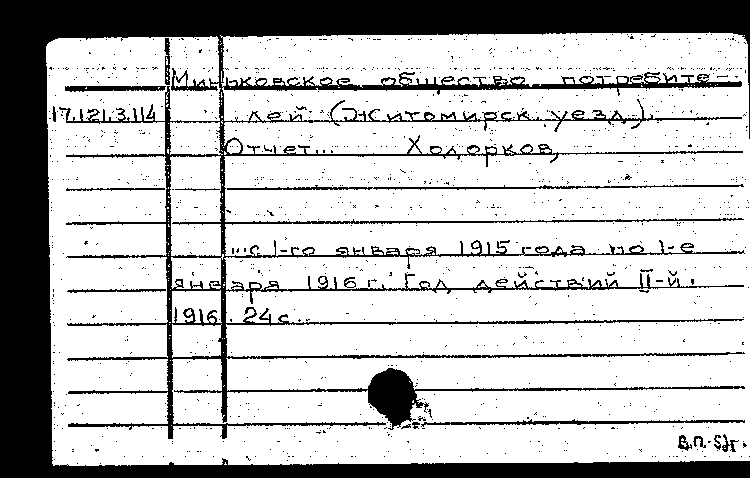 Миньковское общество потребите-
17.121.3.114 лей (Житомирск. уезд).
Отчет... Ходорков,
...с 1-го января 1915 года по 1-е
января 1916 г. Год действий II-й.
1916. 24 с.